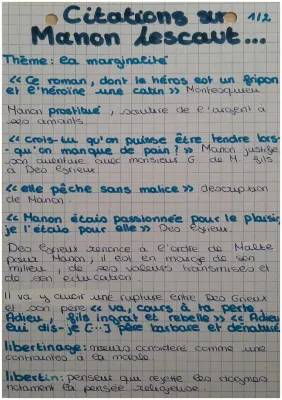 Citations sur 1/2
Manon Lescaut...
Thème: la marginalité
« Ce roman, dont le héros est un fripon
et l'héroïne une catin » Montesquieu
Manon prostitué, soutire de l'argent à
ses amants.
« crois-tu qu'on puisse être tendre lors-
-qu'on manque de pain? » Manon justifie
son aventure avec monsieur G. de M. fils
à Des Grieux
« elle pêche sans malice » description
de Manon.
« Manon étais passionnée pour le plaisir,
je l'étais pour elle » Des Grieux.
Des Grieux renonce à l'ordre de Malte
pour Manon, il est en marge de son
milieu, de ses valeurs transmises et
de son éducation.
Il va y avoir une rupture entre Des Grieux
et son père « va, cours à ta perte
Adieu, fils ingrat et rebelle » « Adieu
lui dis-je [...] père barbare et dénaturé
libertinage: mœurs considéré comme une
contraintes à la morale.
libertin: penseur qui rejette les dogmes
notament la pensée religieuse.